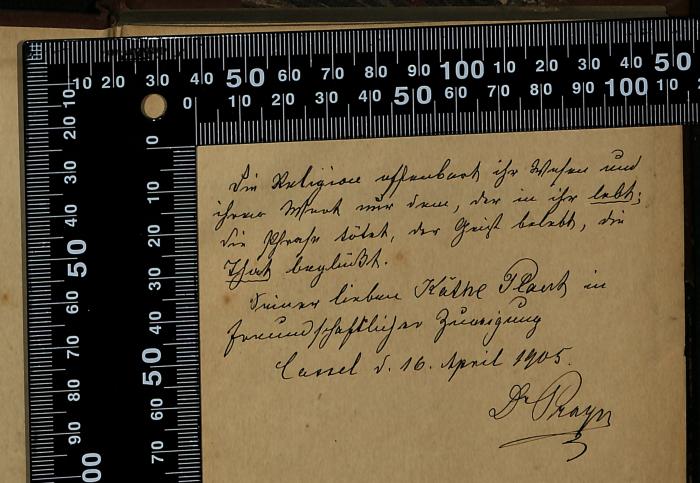 10 20 30 40 50 60 70 80 90 100 10 20 30 40 50
0 10 20 30 40 50 60 70 80 90 100 10
10 20 30 40 50 60 70 80 90 100
0 10 20 30 40 50 60 70
Die Religion offenbart ihr Wesen und
ihren Wert nur dem, der in ihr lebt;
die Phrase tötet, der Geist belebt, die
That beglückt.
Seiner lieben Käthe in
freundschaftlicher Zuneigung
Cassel d. 16. April 1905.
Dr